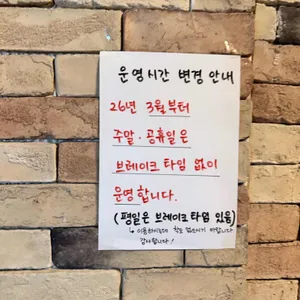 운영시간 변경 안내
26년 3월부터
주말·공휴일은
브레이크 타임 없이
운영합니다.
(평일은 브레이크 타임 있음)
↳ 이용하시는데 착오 없으시기 바랍니다
감사합니다!